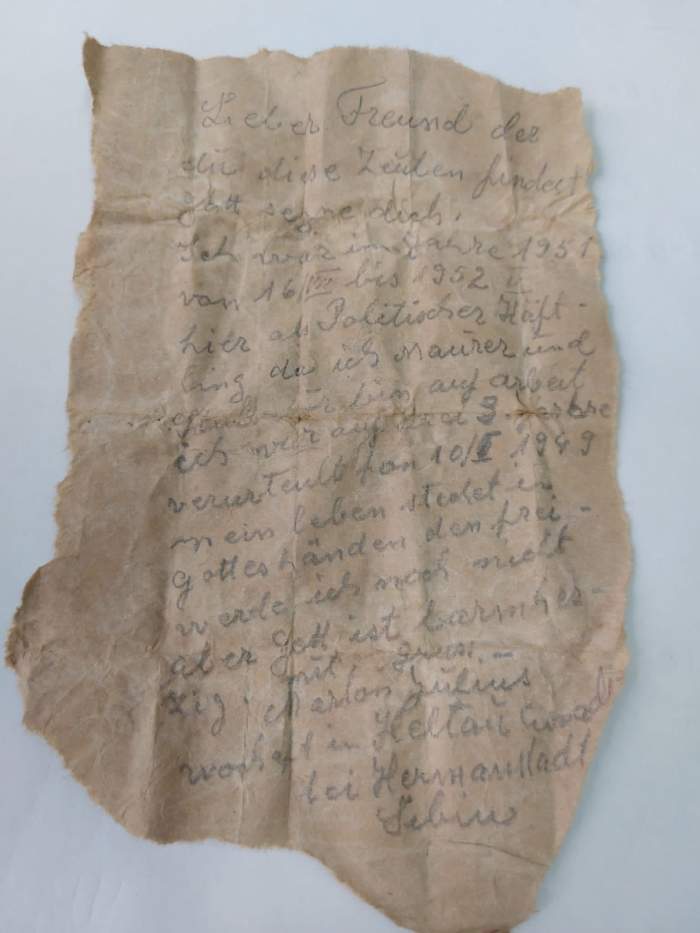 Lieber Freund der
du diese Zeilen findest
gott segne dich.
Ich war im Jahre 1951
von 16/VII bis 1952 V
hier als Politischer Häft-
ling da ich Maurer und
bin auf arbeit
ich war auf 3
verurteilt fon 10/I 1949
mein leben stedet in
gotteshänden den frei-
werde ich noch nicht
aber gott ist barmher-
zig. mit gruss. -
Marton Julius
wohaft in Heltau
bei Hermanstadt
Sibiu